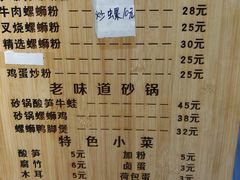 牛肉螺蛳粉 28元
叉烧螺蛳粉 25元
精选螺蛳粉 30元
炒螺10元
鸡蛋炒粉 25元
老味道砂锅
砂锅酸笋牛蛙 45元
砂锅螺蛳鸡 38元
螺蛳鸭脚煲 32元
特色小菜
酸笋 5元 加粉 5元
腐竹 6元 卤蛋 3元
木耳 荷包蛋